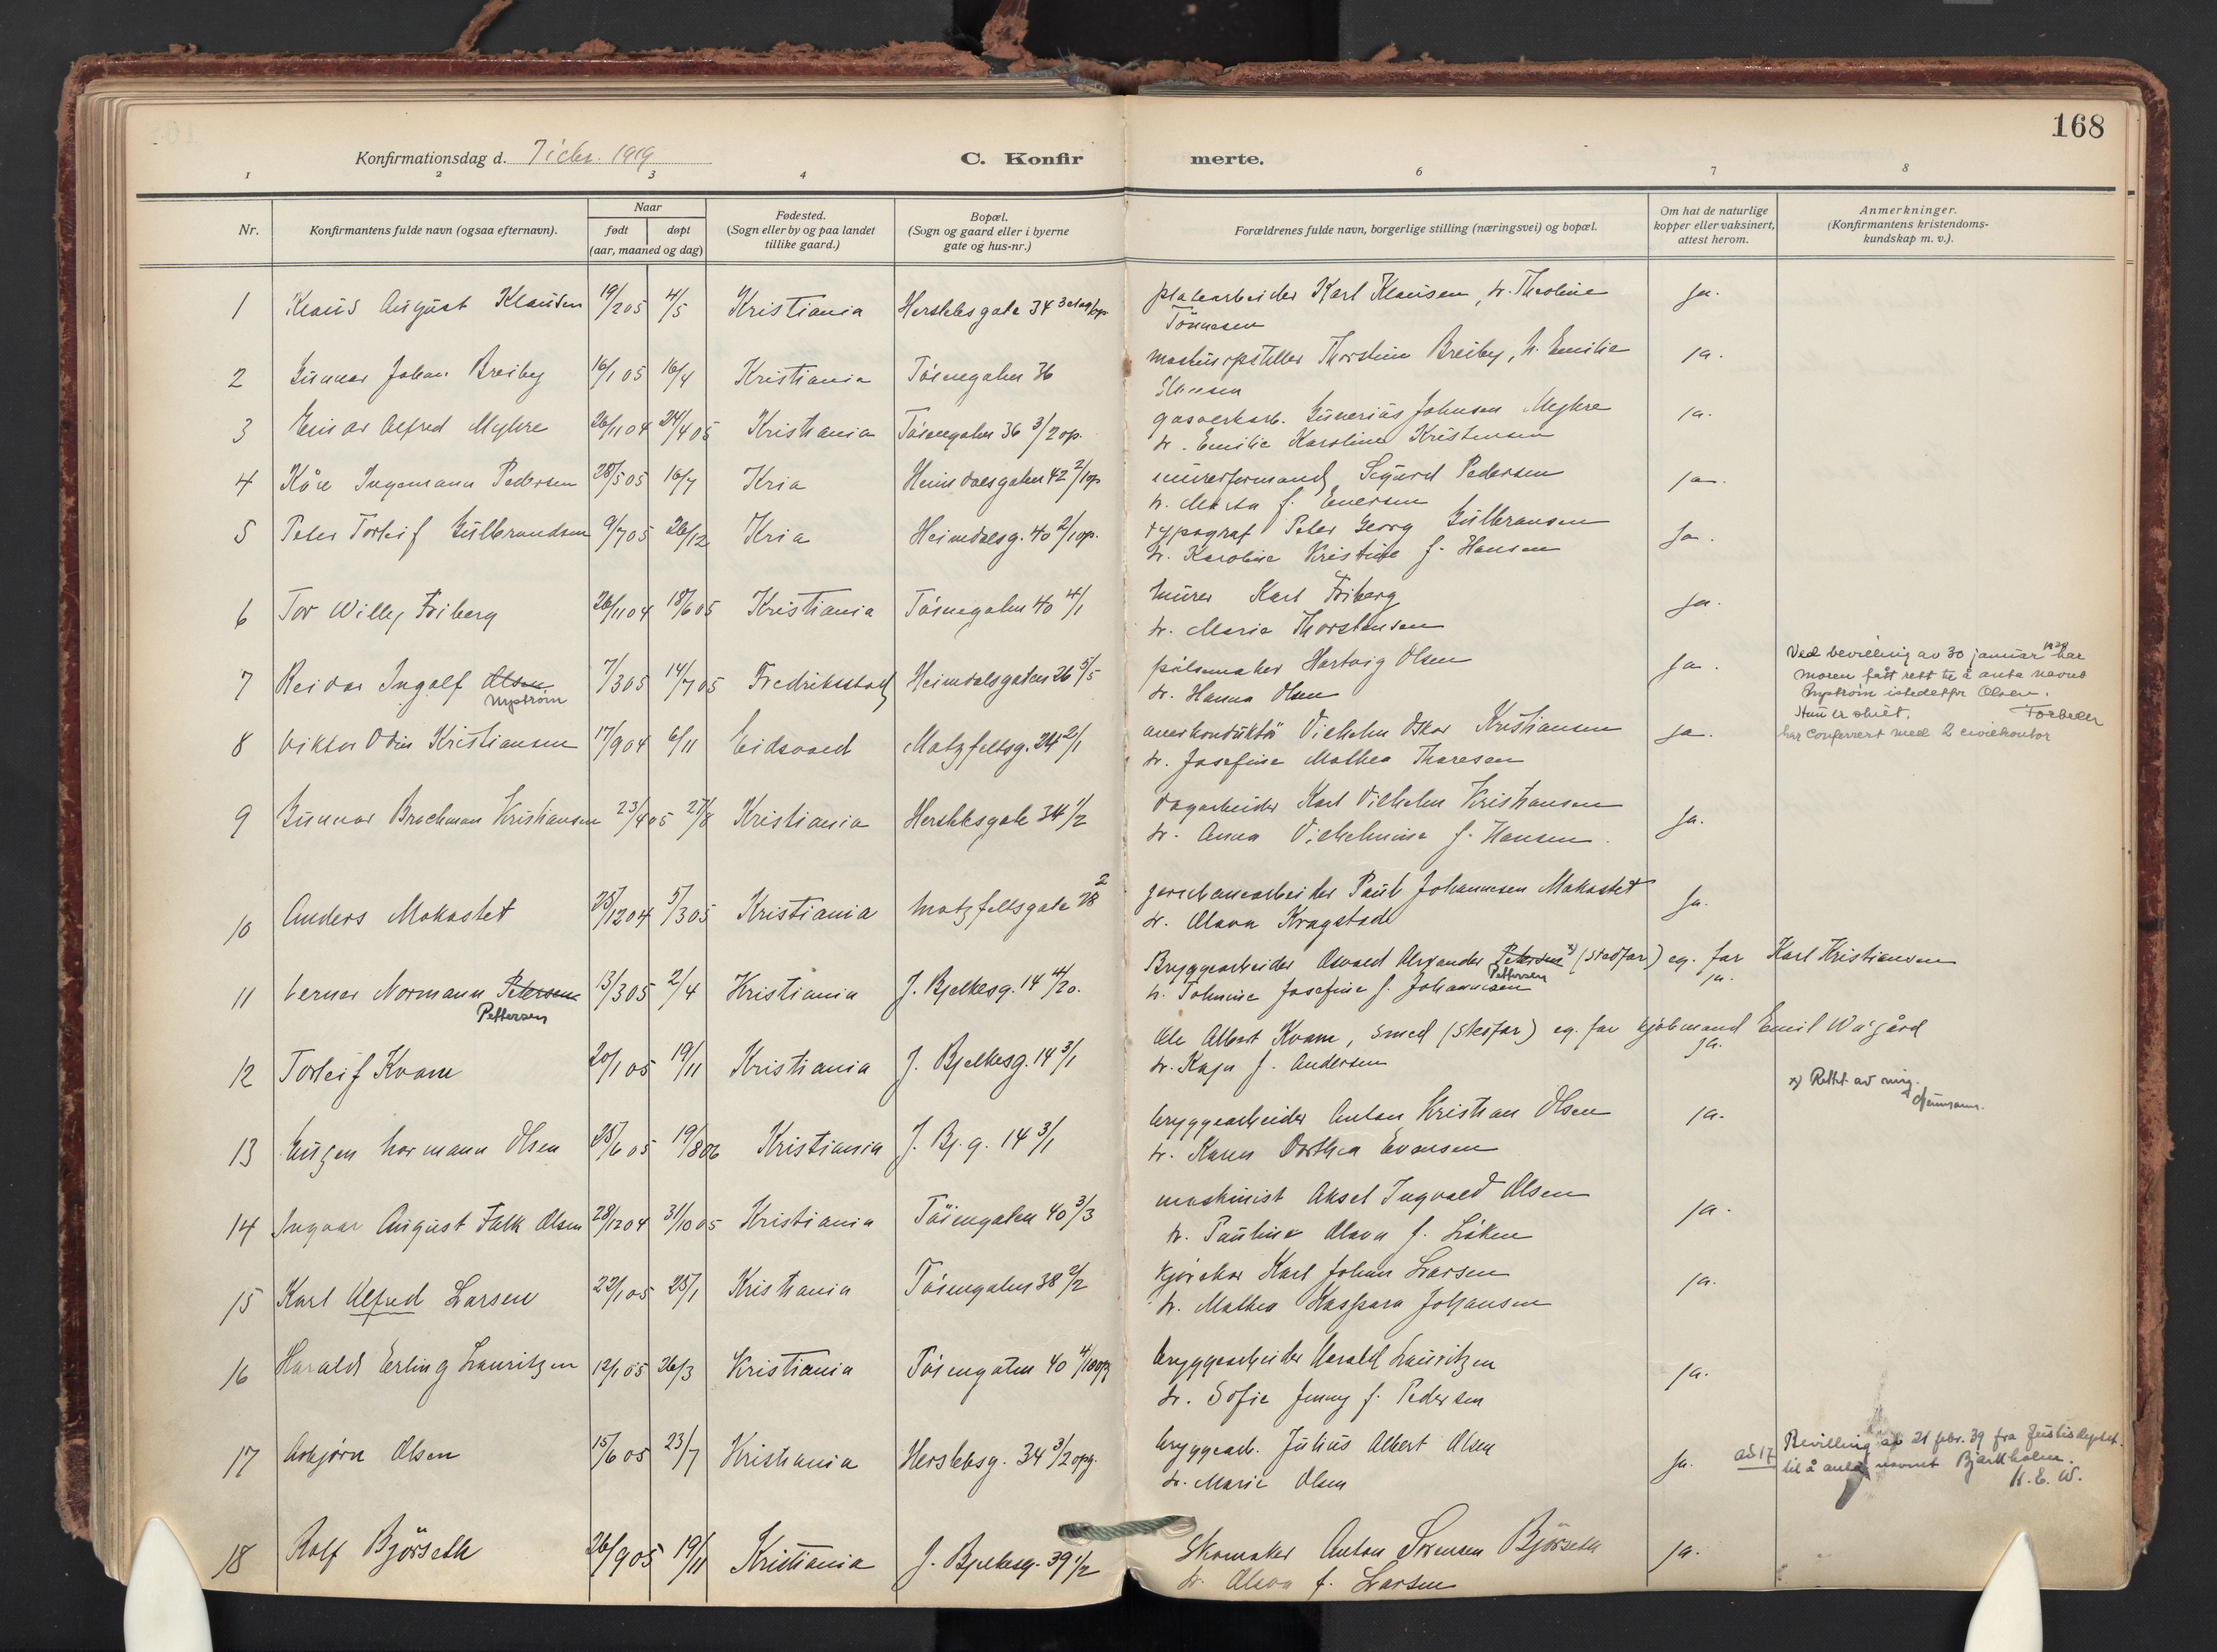 168
Konfirmationsdag d. 7 icbr. 1919
C. Konfirmerte.
1 2 3 4 6 7 8
Nr.
Konfirmantens fulde navn (ogsaa efternavn).
Naar
født døpt
(aar, maaned og dag)
Fødested.
(Sogn eller by og paa landet
tillike gaard.)
Bopæl.
(Sogn og gaard eller i byerne
gate og hus-nr.)
Forældrenes fulde navn, borgerlige stilling (næringsvei) og bopæl.
Om hat de naturlige
kopper eller vaksinert,
attest herom.
Anmerkninger.
(Konfirmantens kristendoms-
kundskap m. v.).
1 Klaus August Klausen 19/2 05 4/5 Kristiania Herslebsgate 34 3 etag
platearbeider Karl Klausen, h. Theoline ja.
Tönnesen
2 Gunnar Johan Breiby 16/1 05 16/4 Kristiania Töiengaten 36
maskinopstiller Thorstein Breiby, h. Emilie ja.
3 Einar Alfred Myhre 26/11 04 24/4 05 Kristiania Töiengaten 36 3/2 op.
gasverkarb. Gunerius Johnsen Myhre ja.
h. Emilie Karoline Kristensen
4 Kåre Ingemann Pedersen 28/5 05 16/7 Kria Heimdalsgaten 42 2/1 op
murerformand Sigurd Pedersen ja.
h. Marta f. Enersen
5 Peter Torleif Gulbrandsen 9/7 05 26/12 Kria Heimdalsg. 40 2/1 op.
typograf Peter Georg Gulbransen ja.
h. Karoline Kristine f. Hansen
6 Tor Willy Friberg 26/11 04 18/6 05 Kristiania Töiengaten 40 4/1
Murer Karl Friberg ja.
h. Marie Thorstensen
7 Reidar Ingolf Olsen 7/3 05 14/7 05 Fredriksstad Heimdalsgaten 26 5/5
Nyström
pölsemaker Hartvig Olsen ja.
h. Hanna Olsen
Ved bevilling av 30 januar 1934 har
moren fått rett til å anta navnet
Nyström istedetfor Olsen.
har conferert med 2 civilkontor
8 Viktor Odin Kristiansen 17/9 04 6/11 Eidsvold Motzfeltsg. 24 2/1
overkonduktör Vilhelm Oskar Kristiansen ja.
h. Josefine Mathea Thoresen
9 Gunnar Brachman Kristiansen 23/4 05 27/8 Kristiania Herslebsgate 34 1/2
dagarbeider Karl Vilhelm Kristiansen ja.
h. Anna Vilhelmine f. Hansen.
10 Anders Mokastet 25/12 04 5/3 05 Kristiania Motzfeltsgate 28 2
jernbanearbeider Paul Johannesen Mokastet ja.
h. Olava Kragstad
11 Verner Normann Petersen 13/3 05 2/4 Kristiania J. Bjelkesg. 14 4/20.
Pettersen
Bryggearbeider Osvald Alexander Petersen x) (stedfar) eg. far Karl Kristiansen
Pettersen
h. Johnine Josefine f. Johannesen ja.
12 Torleif Kvam 20/1 05 19/11 Kristiania J. Bjelkesg. 14 3/1
Ole Albert Kvam, smed (stedfar) eg. far kjöbmand Emil Wågård
h. Kaja f. Andersen ja.
x) Rettet av mig.
13 Eugen Normann Olsen 25/6 05 19/8 06 Kristiania J. Bj. g. 14 3/1
bryggearbeider Anton Kristian Olsen ja.
h. Karen Dorthea Evensen
14 Ingvar August Falk Olsen 28/12 04 31/10 05 Kristiania Töiengaten 40 3/3
maskinist Aksel Ingvald Olsen ja.
h. Pauline Olava f. Löken
15 Karl Alfred Larsen 22/1 05 25/1 Kristiania Töiengaten 38 2/2
Kjörekar Karl Johan Larsen ja.
h. Mathea Kaspara Johansen
16 Harald Erling Lauritzen 12/1 05 26/3 Kristiania Töiengaten 40 4/10 opg
bryggearbeider Harald Lauritzen ja.
h. Sofie Jenny f. Pedersen
17 Asbjørn Olsen 15/6 05 23/7 Kristiania Herslebsg. 34 3/2 opg.
bryggearb. Julius Albert Olsen ja.
h. Marie Olsen
ad 17 Bevilling av 21 febr. 39 fra Justisdeptet.
til å anta navnet Bjarkholm.
K. E. W.
18 Rolf Björseth 26/9 05 19/11 Kristiania J. Bjelkesg. 39 1/2
Skomaker Anton Sörensen Björseth ja.
h. Olava f. Larsen